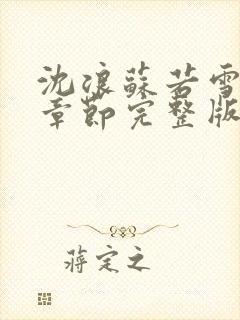 沈浪蘇若雪
章節完整版
蔣定之